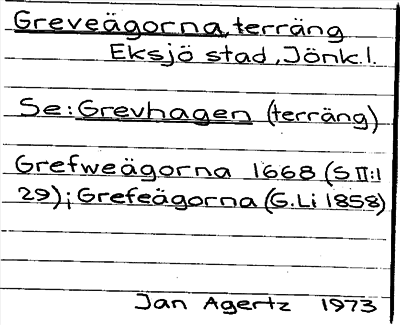 Greveägorna, terräng
Eksjö stad, Jönk.l.
Se: Grevhagen (terräng)
Grefweägorna 1668 (S II:1
29); Grefeägorna (G.Li 1858)
Jan Agertz 1973